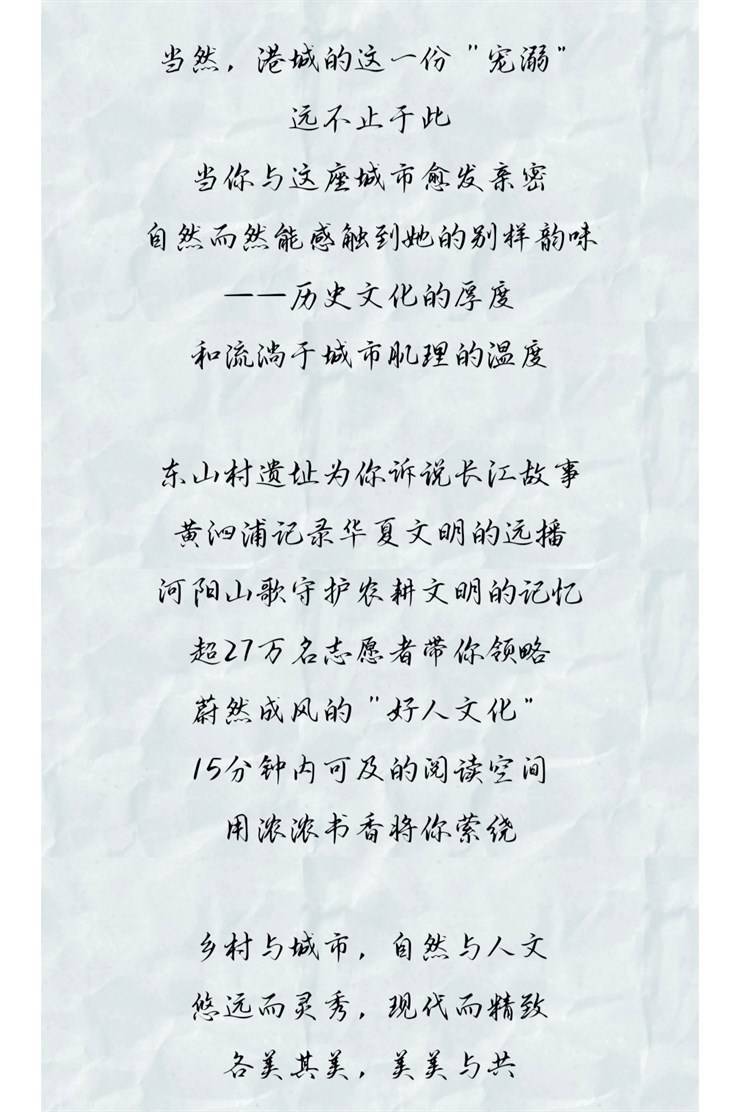 当然，港城的这一份"宠溺"
远不止于此
当你与这座城市愈发亲密
自然而然能感触到她的别样韵味
——历史文化的厚度
和流淌于城市肌理的温度
东山村遗址为你诉说长江故事
黄泗浦记录华夏文明的远播
河阳山歌守护农耕文明的记忆
超27万名志愿者带你领略
蔚然成风的"好人文化"
15分钟内可及的阅读空间
用浓浓书香将你萦绕
乡村与城市，自然与人文
悠远而灵秀，现代而精致
各美其美，美美与共